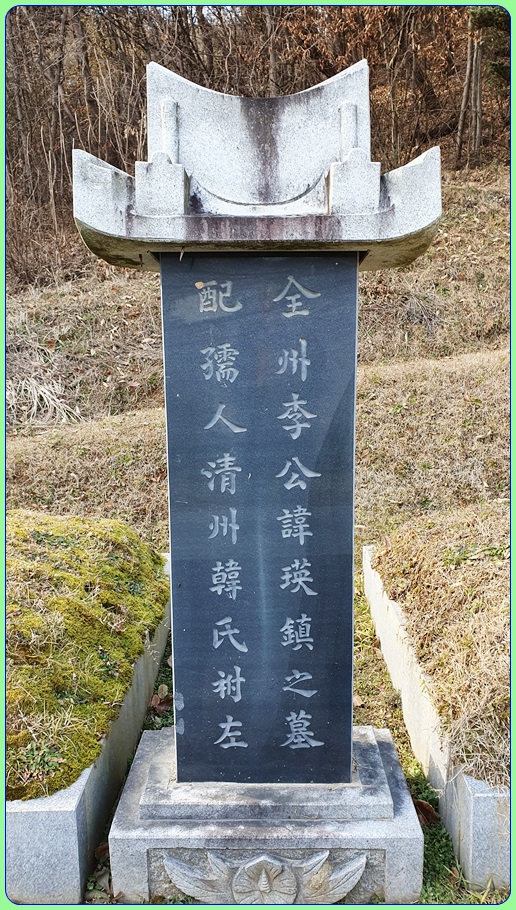 全州李公諱瑛鎮之墓
配孺人淸州韓氏祔左